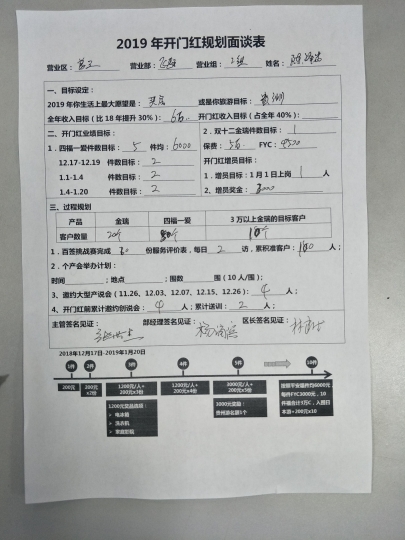 2019 年开门红规划面谈表
营业区： 营业部： 营业组：二组 姓名：
一、目标设定：
2019 年你生活上最大愿望是：买房 或是你旅游目标：
全年收入目标（比 18 年提升 30%）：6万 开门红收入目标（占全年 40%）：
二、开门红业绩目标： 2. 双十二金瑞件数目标：1
1. 四福一爱件数目标：5 件均：6000 保费：5万 FYC：9500
12.17-12.19 件数目标：2 开门红增员目标：
1.1-1.4 件数目标：2 1. 增员目标：1 月 1 日上岗 1 人
1.4-1.20 件数目标：2 2. 增员奖金：3000
三、过程规划
产品 金瑞 四福一爱 3 万以上金瑞的目标客户
客户数量 20个 10个
1. 百签挑战赛完成 份服务评价表，每日 2 访，累积准客户：100 人；
2. 个产会举办计划：
时间 ；地点 ；围数 围（10 人/围）；
3、邀约大型产说会（11.26、12.03、12.07、12.15、12.26）：4 人；
4、开门红前累计邀约创说会：4 人；累计送训：2 人；
主管签名见证： 部经理签名见证： 区长签名见证：
2018年12月17日-2019年1月20日
1件 2件 3件 4件 5件 10件
200元 200元×2份 1200元/人+200元×3份 1200元/人+200元×4份 3000元/人+200元×5份
1200元奖品选项：
电冰箱
洗衣机
3000元奖励：